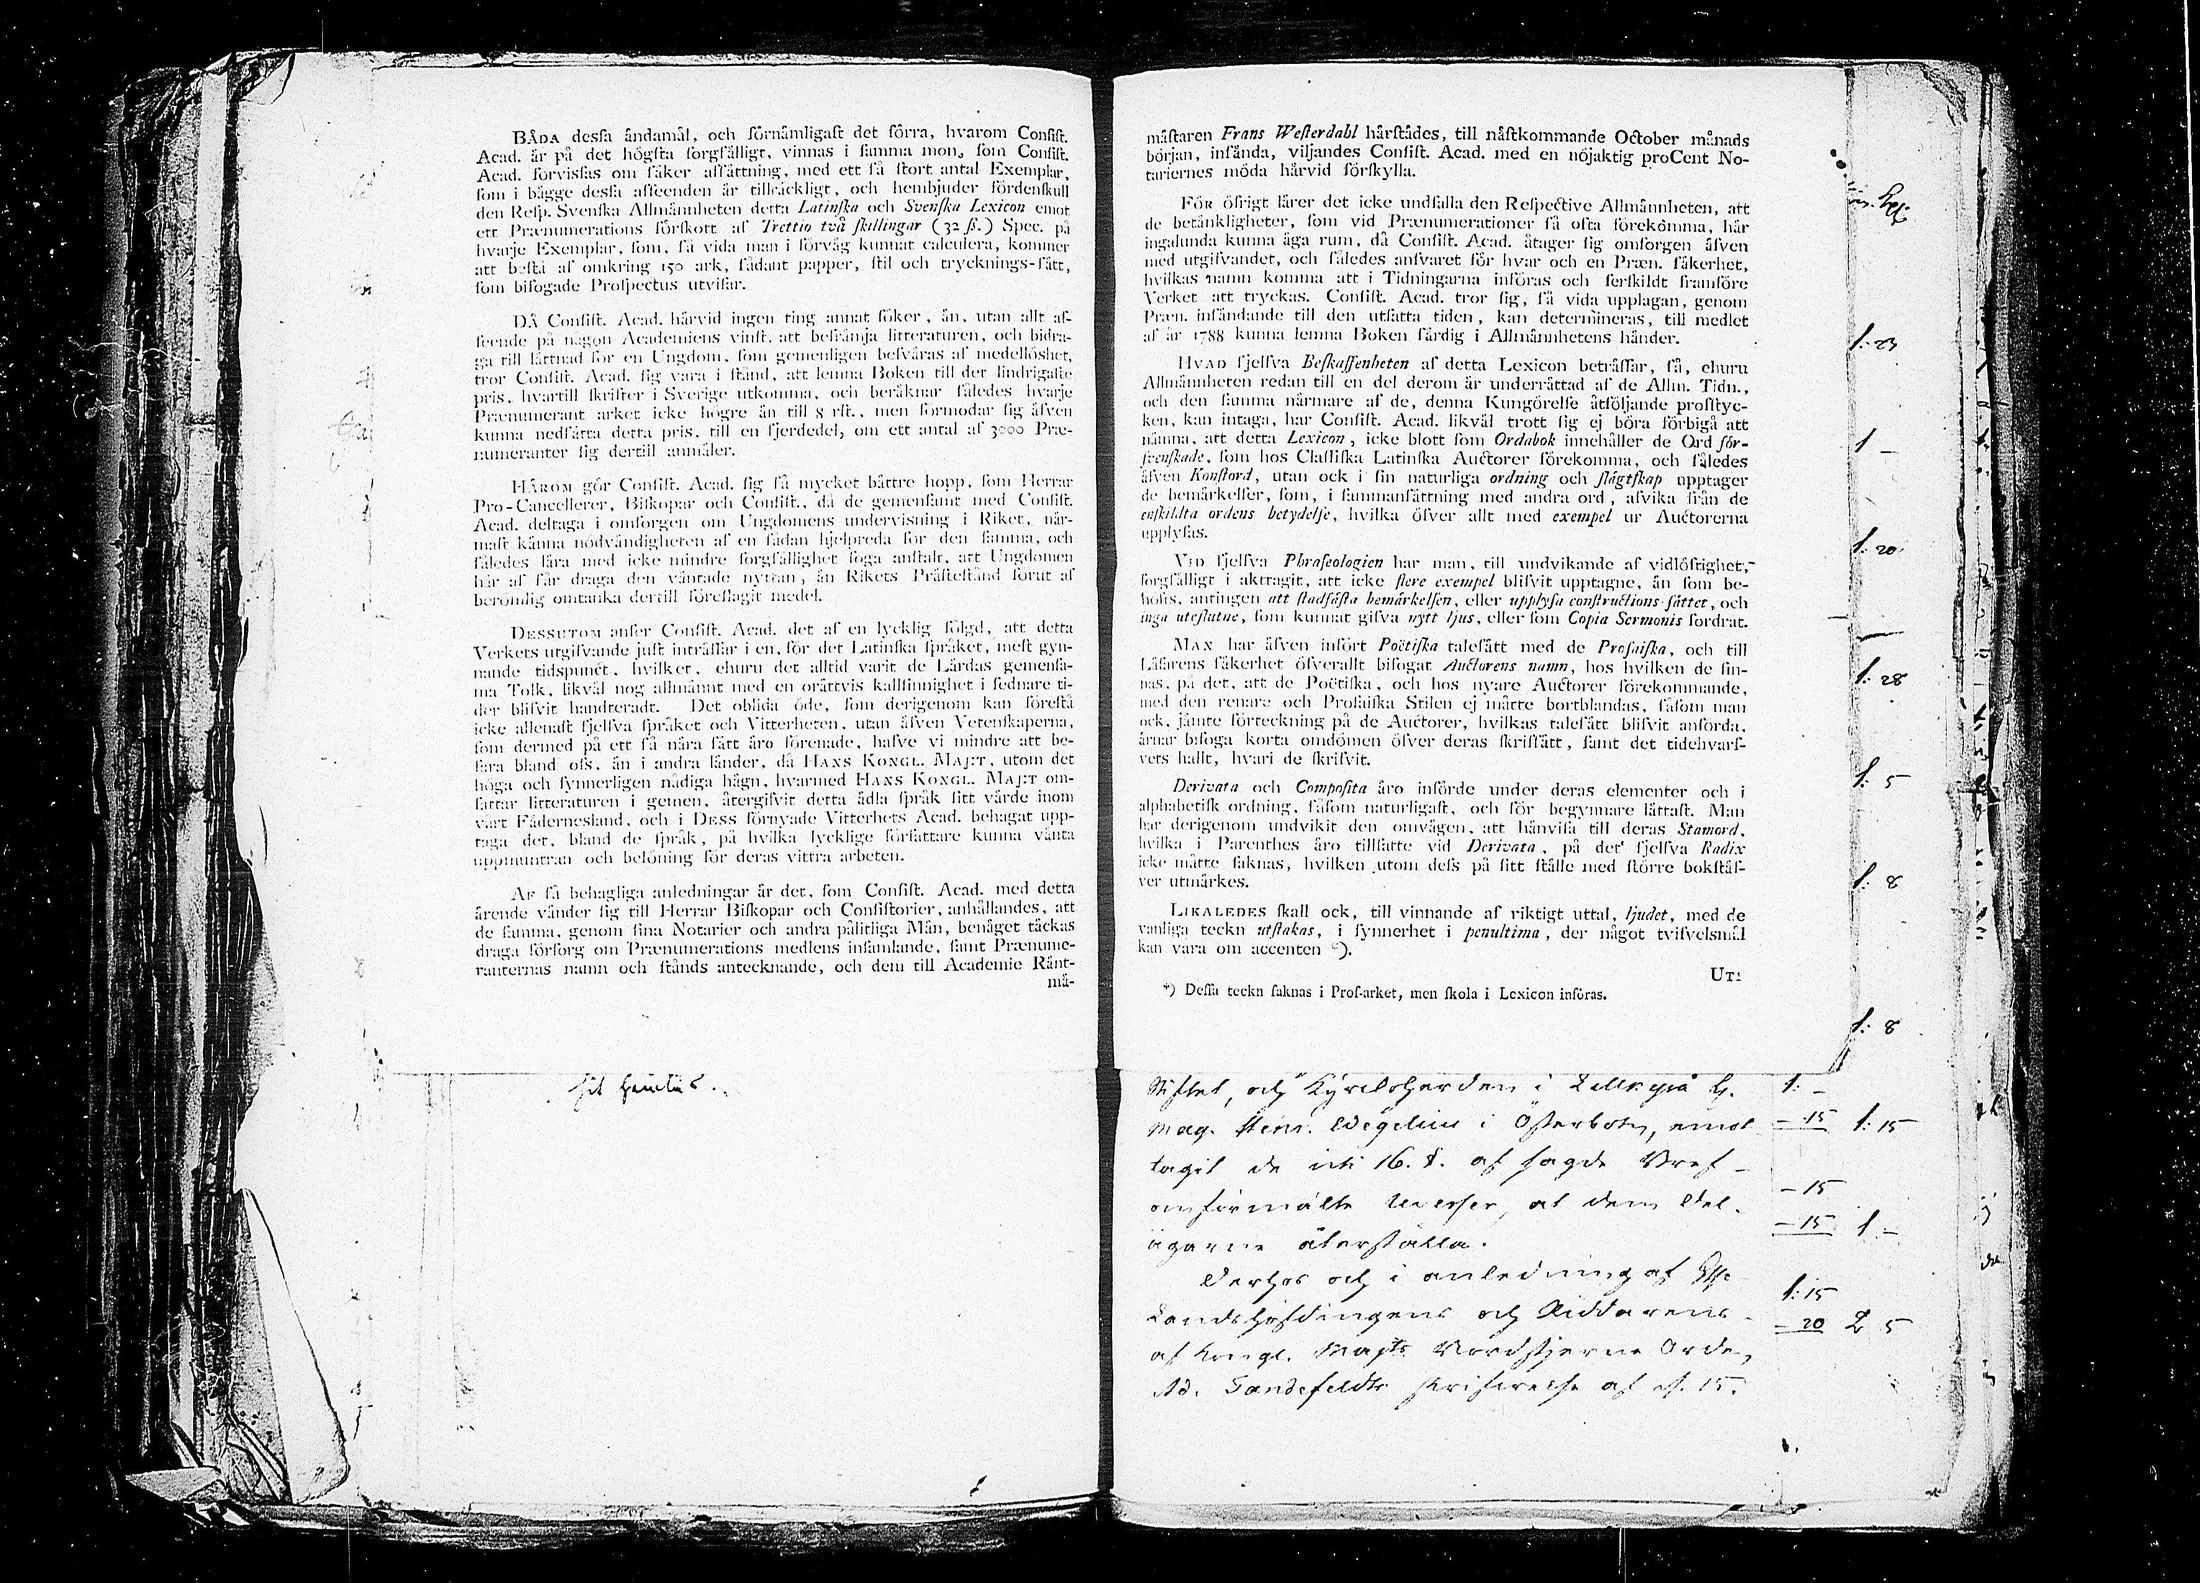 BÅDA dessa ändamål, och förnämligast det förra, hvarom Consist.
Acad. är på det högsta sorgfälligt, vinnas i samma mon, som Consist.
Acad. förvissas om säker afsättning, med ett så stort antal Exemplar,
som i bägge dessa afseenden är tillräckligt, och hembjuder fördenskull
den Resp. Svenska Allmännheten detta Latinska och Svenska Lexicon emot
ett Prænumerations förskott af Trettio två skillingar (32 ß.) Spec. på
hvarje Exemplar, som, så vida man i förväg kunnat calculera, kommer
att bestå af omkring 150 ark, sådant papper, stil och trycknings-sätt,
som bifogade Prospectus utvisar.
DÅ Consist. Acad. härvid ingen ting annat söker, än, utan allt af-
seende på någon Academiens vinst, att befrämja litteraturen, och bidra-
ga till lättnad för en Ungdom, som gemenligen besväras af medellöshet,
tror Consist. Acad. sig vara i stånd, att lemna Boken till det lindrigaste
pris, hvartill skrifter i Sverige utkomma, och beräknar således hvarje
Prænumerant arket icke högre än till 8 rst., men förmodar sig äfven
kunna nedsätta detta pris, till en fjerdedel, om ett antal af 3000 Præ-
numeranter sig dertill anmäler.
HÄROM gör Consist. Acad. sig så mycket bättre hopp, som Herrar
Pro-Cancellerer, Biskopar och Consist., då de gemensamt med Consist.
Acad. deltaga i omsorgen om Ungdomens undervisning i Riket, när-
mast känna nödvändigheten af en sådan hjelpreda för den samma, och
således lära med icke mindre sorgfällighet foga anstalt, att Ungdomen
här af får draga den väntade nyttan, än Rikets Prästestånd förut af
berömlig omtanka dertill föreslagit medel.
DESSUTOM anser Consist. Acad. det af en lycklig följd, att detta
Verkets utgifvande just inträffar i en, för det Latinska språket, mest gyn-
nande tidspunct, hvilket, ehuru det alltid varit de Lärdas gemensa-
ma Tolk, likväl nog allmännt med en orättvis kallsinnighet i sednare ti-
der blifvit handteradt. Det oblida öde, som derigenom kan förestå
icke allenast sjelfva språket och Vitterheten, utan äfven Vetenskaperna,
som dermed på ett så nära sätt äro förenade, hafve vi mindre att be-
fara bland oss, än i andra länder, då HANS KONGL. MAJ:T, utom det
höga och synnerligen nådiga hägn, hvarmed HANS KONGL. MAJ:T om-
fattar litteraturen i gemen, återgifvit detta ädla språk sitt värde inom
vårt Fädernesland, och i DESS förnyade Vitterhets Acad. behagat upp-
taga det, bland de språk, på hvilka lycklige författare kunna vänta
uppmuntran och belöning för deras vittra arbeten.
AF så behagliga anledningar är det, som Consist. Acad. med detta
ärende vänder sig till Herrar Biskopar och Consistorier, anhållandes, att
de samma, genom sina Notarier och andra pålitliga Män, benäget täckas
draga försorg om Prænumerations medlens insamlande, samt Prænume-
ranternas namn och stånds antecknande, och dem till Academie Ränt-
mä-
mästaren Frans Westerdahl härstädes, till nästkommande October månads
början, insända, viljandes Consist. Acad. med en nöjaktig proCent No-
tariernes möda härvid förskylla.
FÖR öfrigt lärer det icke undfalla den Respective Allmännheten, att
de betänkligheter, som vid Prænumerationer så ofta förekomma, här
ingalunda kunna äga rum, då Consist. Acad. åtager sig omsorgen äfven
med utgifvandet, och således ansvaret för hvar och en Præn. säkerhet,
hvilkas namn komma att i Tidningarna införas och serskildt framföre
Verket att tryckas. Consist. Acad. tror sig, så vida upplagan, genom
Præn. insändande till den utsatta tiden, kan determineras, till medlet
af år 1788 kunna lemna Boken färdig i Allmännhetens händer.
HVAD sjelfva Beskaffenheten af detta Lexicon beträffar, så, ehuru
Allmännheten redan till en del derom är underrättad af de Allm. Tidn.,
och den samma närmare af de, denna Kungörelse åtföljande profstyc-
ken, kan intaga, har Consist. Acad. likväl trott sig ej böra förbigå att
nämna, att detta Lexicon, icke blott som Ordabok innehåller de Ord för-
svenskade, som hos Classiska Latinska Auctorer förekomma, och således
äfven Konstord, utan ock i sin naturliga ordning och slägtskap upptager
de bemärkelser, som, i sammansättning med andra ord, afvika från de
enskildta ordens betydelse, hvilka öfver allt med exempel ur Auctorerna
upplysas.
VID sjelfva Phraseologien har man, till undvikande af vidlöftighet,
sorgfälligt i akttagit, att icke flere exempel blifvit upptagne, än som be-
höfts, antingen att stadfästa bemärkelsen, eller upplysa constructions-sättet, och
inga uteslutne, som kunnat gifva nytt ljus, eller som Copia Sermonis fordrat.
MAN har äfven infört Poëtiska talesätt med de Prosaiska, och till
Läsarens säkerhet öfverallt bifogat Auctorens namn, hos hvilken de fin-
nas, på det, att de Poëtiska, och hos nyare Auctorer förekommande,
med den renare och Prosaiska Stilen ej måtte bortblandas, såsom man
ock, jämte förteckning på de Auctorer, hvilkas talesätt blifvit anförda,
ärnar bifoga korta omdömen öfver deras skrifsätt, samt det tidehvarf-
vets halt, hvari de skrifvit.
Derivata och Composita äro införde under deras elementer och i
alphabetisk ordning, såsom naturligast, och för begynnare lättast. Man
har derigenom undvikit den omvägen, att hänvisa till deras Stamord,
hvilka i Parenthes äro tillsatte vid Derivata, på det sjelfva Radix
icke måtte saknas, hvilken utom dess på sitt ställe med större bokstäf-
ver utmärkes.
LIKALEDES skall ock, till vinnande af riktigt uttal, ljudet, med de
vanliga teckn utstakas, i synnerhet i penultima, der något tvifvelsmål
kan vara om accenten *).
UTI
*) Dessa teckn saknas i Prof-arket, men skola i Lexicon införas.
1: 23
1 –
1: 20
1: 28
1: 5
1: 8
1: 8
Stiftet, och Kyrckoherden i H. 1: –
Mag. Henr. Wegelius i Österbotn, emot – 15 1: 15
tagit de uti 16. §. af sagde Bref –
omförmälte at dem Del. – 15
ägarne återställa. – 15 1 –
Derhos och i anledning af 1: 15
Landshöfdingens och Riddarens – 20 2 5
af Kongl. Majts Nordstjerne Orde,
Ad. Tandefeldts skrifvelse af d. 15.